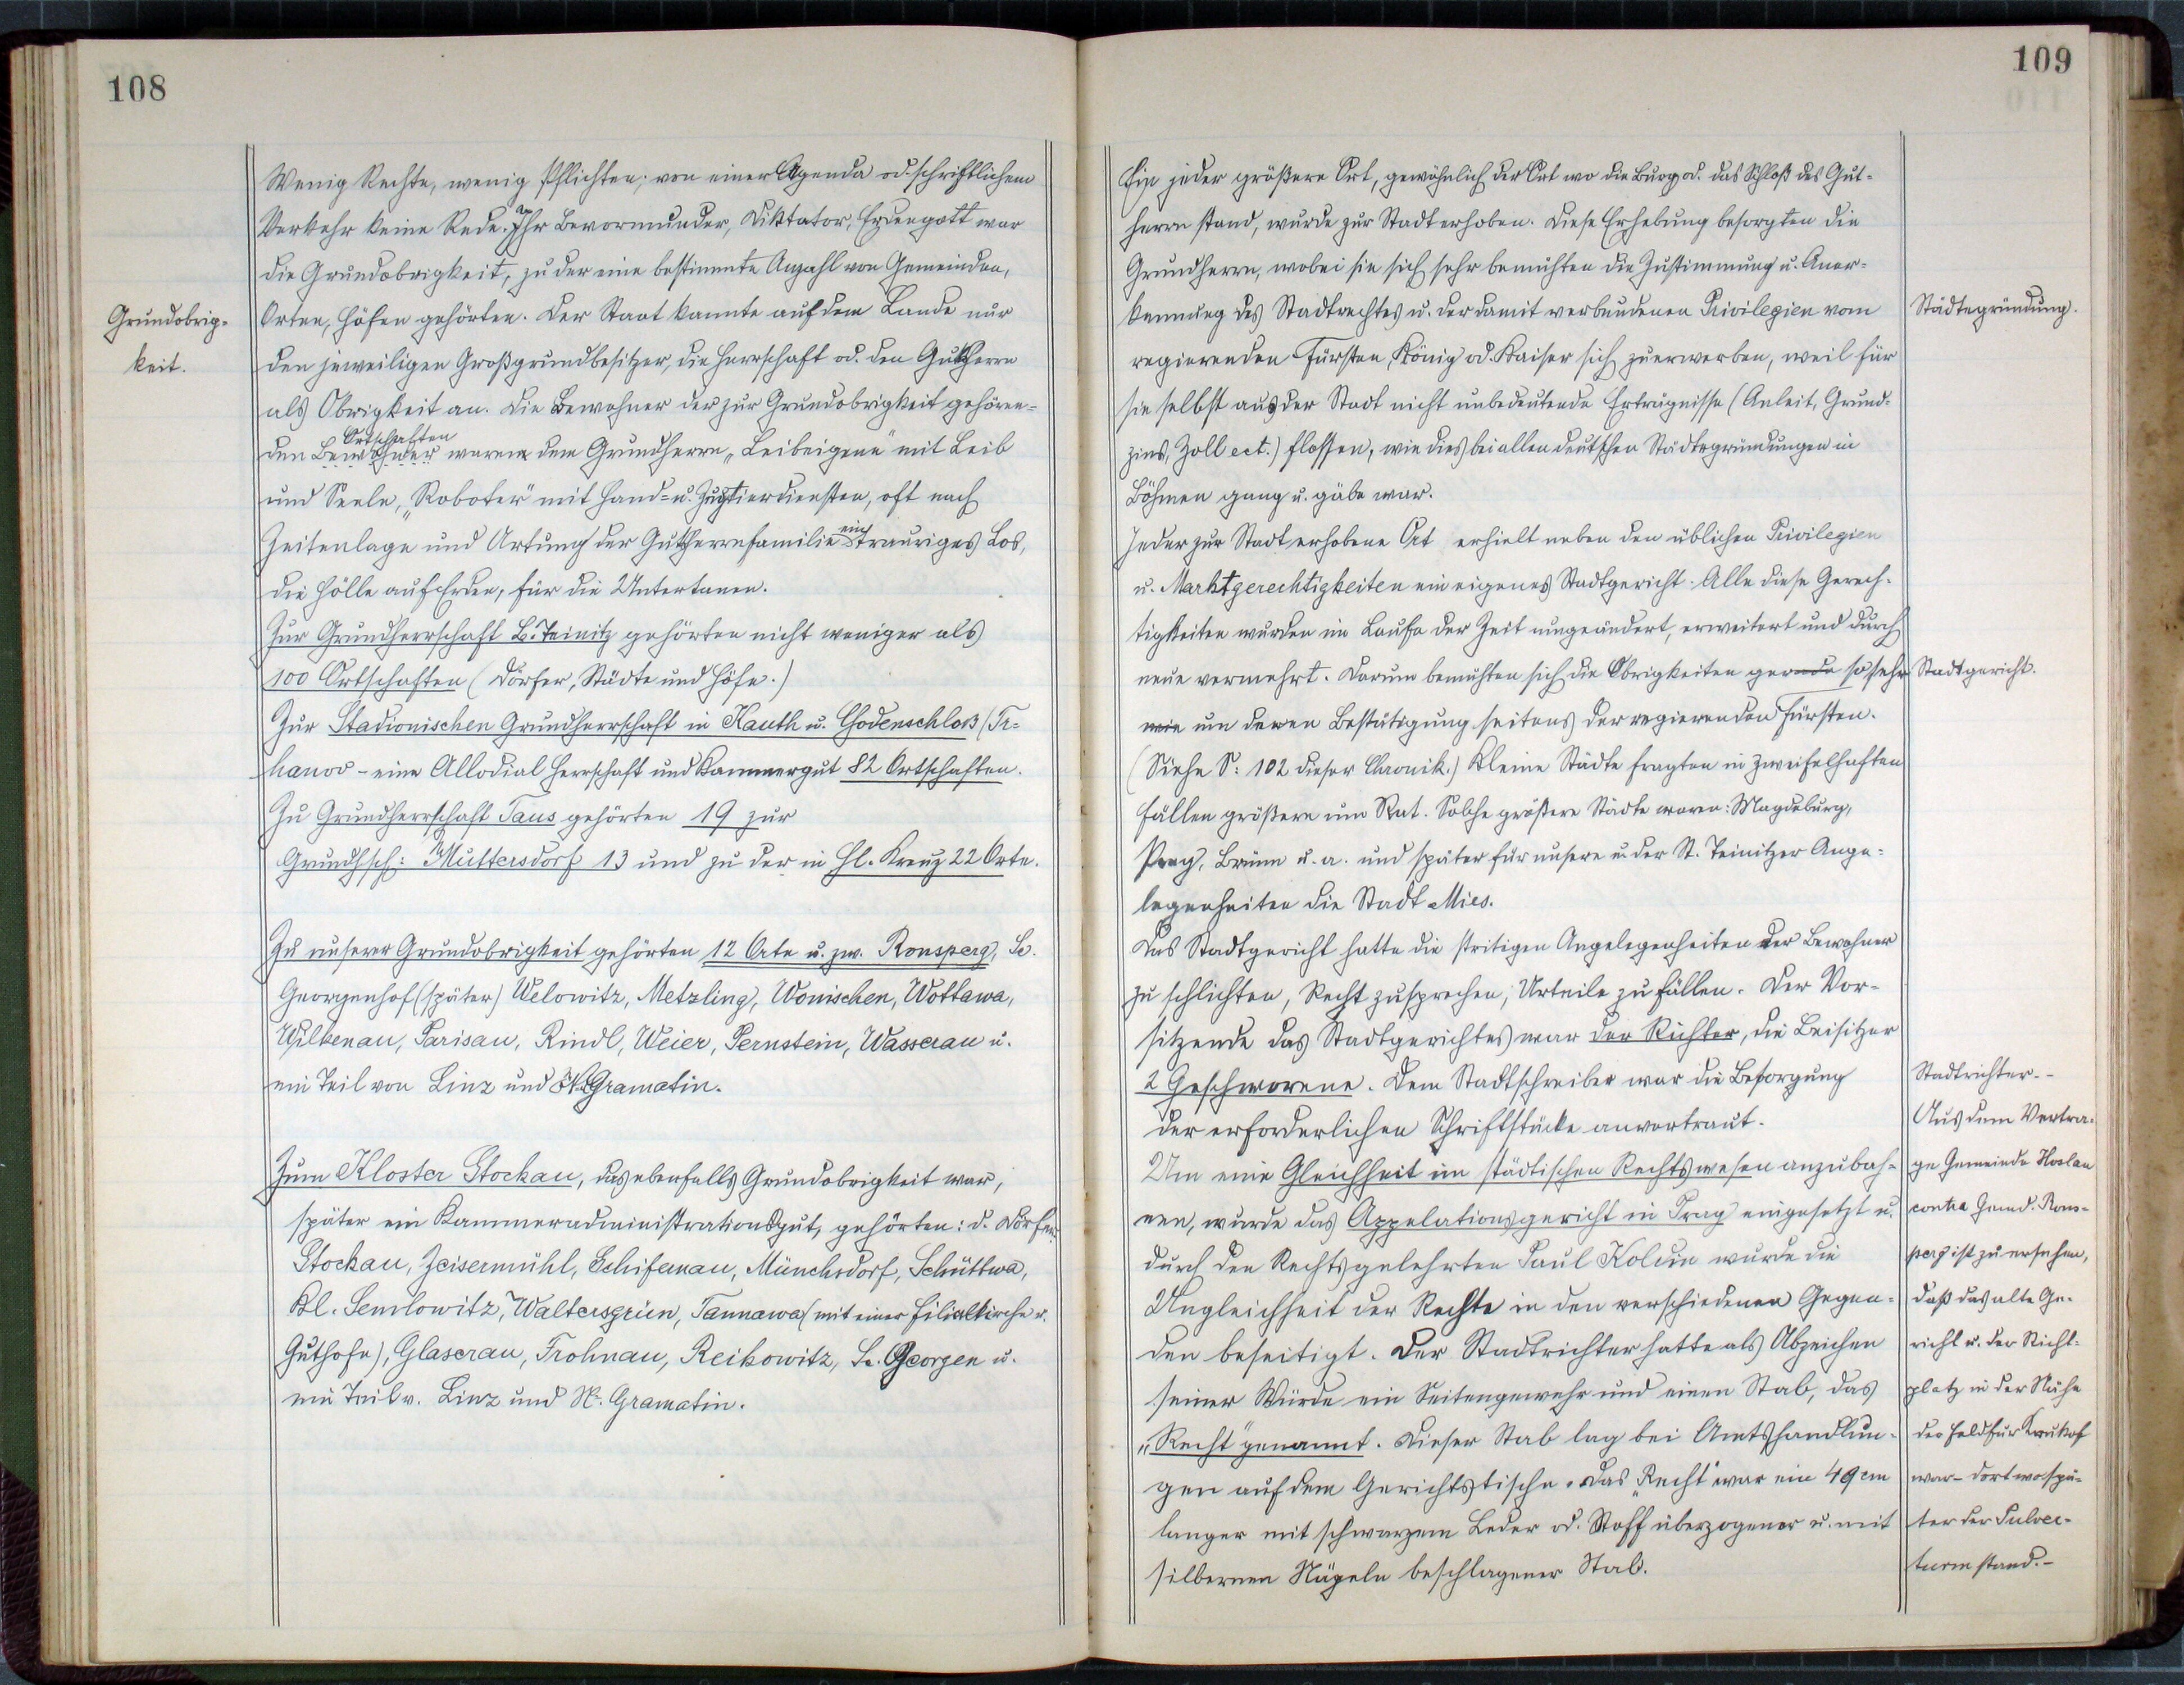 108
Wenig Rechte, wenig Pflichten; von einer Agenda od. schriftlichem
Verkehr keine Rede. Ihr Bevormunder, Diktator, Erdengott war
die Grundobrigkeit, zu der eine bestimmte Anzahl von Gemeinden,
Grundobrig-
keit.
Orten, Höfen gehörten. Der Staat kannte auf dem Lande nur
den jeweiligen Großgrundbesitzer, die Herrschaft od. den Gutsherrn
als Obrigkeit an. Die Bewohner der zur Grundobrigkeit gehören-
Ortschaften
den Bewohner waren dem Grundherrn „Leibeigene" mit Leib
und Seele, „Roboter" mit Hand- u. Zugtierdiensten, oft nach
Zeitenlage und Artung der Gutsherrnfamilie ein trauriges Los,
die Hölle auf Erden, für die Untertanen.
Zur Grundherrschaft B. Teinitz gehörten nicht weniger als
100 Ortschaften (Dörfer, Städte und Höfe.)
Zur Stadionischen Grundherrschaft in Kauth u. Chodenschloß (Tr-
hanov - eine Allodial Herrschaft und Kammergut 82 Ortschaften.
Zu Grundherrschaft Taus gehörten 19 zur
Grundhsch: Muttersdorf 13 und zu der in Hl. Kreuz 22 Orte.
Zu unserer Grundobrigkeit gehörten 12 Orte u. zw. Ronsperg, St.
Georgenhof (später) Welowitz, Metzling, Wonischen, Wottawa,
Wilkenau, Parisau, Rindl, Weier, Pernstein, Wasserau u.
ein Teil von Linz und N. Gramatin.
Zum Kloster Stockau, das ebenfalls Grundobrigkeit war,
später ein Kammeradministrationsgut, gehörten: d. Dörfer
Stockau, Zeisermühl, Schifernau, Münchsdorf, Schüttwa,
Kl. Semlowitz, Waltersgrün, Tannawa (mit einer Filialkirche u.
Guthofe), Glaserau, Frohnau, Reikowitz, St. Georgen u.
ein Teil v. Linz und N. Gramatin.
109
Ein jeder größere Ort, gewöhnlich der Ort wo die Burg od. das Schloß des Gut-
herrn stand, wurde zur Stadt erhoben. Diese Erhebung besorgten die
Grundherrn, wobei sie sich sehr bemühten die Zustimmung u. Aner-
kennung des Stadtrechtes u. der damit verbundenen Privilegien vom
Städtegründung.
regierenden Fürsten, König od. Kaiser sich zu erwerben, weil für
sie selbst aus der Stadt nicht unbedeutende Erträgnisse (Anleit, Grund-
zins, Zoll ect.) flossen, wie dies bei allen deutschen Städtegründungen in
Böhmen gang u. gäbe war.
Jeder zur Stadt erhobene Ort erhielt neben den üblichen Privilegien
u. Marktgerechtigkeiten ein eigenes Stadtgericht. Alle diese Gerech-
tigkeiten wurden im Laufe der Zeit umgeändert, erweitert und durch
neue vermehrt. Darum bemühten sich die Obrigkeiten gerade so sehr
Stadtgericht.
wie um deren Bestätigung seitens der regierenden Fürsten.
(Siehe S: 102 dieser Chronik.) Kleine Städte fragten in zweifelhaften
Fällen größere um Rat. Solche größere Städte waren: Magdeburg,
Prag, Brünn u. a. und später für unsere u. der B. Teinitzer Ange-
legenheiten die Stadt Mies.
Das Stadtgericht hatte die stritigen Angelegenheiten der Bewohner
zu schlichten, Recht zusprechen, Urteile zu fällen. Der Vor-
sitzende das Stadtgerichtes war der Richter, die Beisitzer
2 Geschworene. Dem Stadtschreiber war die Besorgung
der erforderlichen Schriftstücke anvertraut.
Um eine Gleichheit im städtischen Rechtswesen anzubah-
nen, wurde das Appelationsgericht in Prag eingesetzt u.
durch den Rechtsgelehrten Paul Koldin wurde die
Ungleichheit der Rechte in den verschiedenen Gegen-
den beseitigt. Der Stadtrichter hatte als Abzeichen
seiner Würde ein Seitengewehr und einen Stab, das
„Recht" genannt. Dieser Stab lag bei Amtshandlun-
gen auf dem Gerichtstische. Das „Recht" war ein 49 cm
langer mit schwarzem Leder od. Stoff überzogener u. mit
silbernen Nägeln beschlagener Stab.
Stadtrichter.-
Aus dem Vertra-
ge Gemeinde Hoslau
contra Gemd. Rons-
perg ist zu ersehen,
daß das alte Ge-
richt u. der Richt-
platz in der Nähe
der Feldflur
war - dort wo spä-
ter der Pulver-
turm stand.-